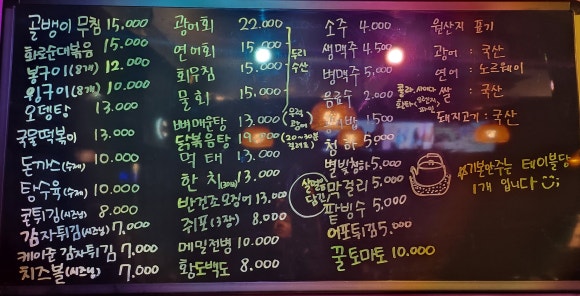 골뱅이 무침 15.000
화로순대볶음 15.000
봉구이(8개) 12.000
윙구이(8개) 10.000
오뎅탕 13.000
국물떡볶이 13.000
돈까스(수제) 10.000
탕수육(수제) 10.000
굴튀김(시즈닝) 8.000
감자튀김(시즈닝) 7.000
케이준 감자튀김 7.000
치즈볼(시즈닝) 7.000
광어회 22.000
연어회 15.000
회무침 15.000
물회 15.000
도리
수산
뼈매운탕 13.000
(우럭
광어)
닭볶음탕 19.000
(20~30분
걸려요)
먹태 13.000
한치(30미) 13.000
반건조오징어 13.000
쥐포(3장) 8.000
메밀전병 10.000
황도백도 8.000
소주 4.000
생맥주 4.500
병맥주 5,000
음료수 2.000
콜라, 사이다
공기밥 1500
청하 5,000
별빛청하 5,000
막걸리 5.000
팥빙수 5,000
어포튀김 5.000
꿀토마토 10.000
원산지 표기
광어 : 국산
연어 : 노르웨이
쌀 : 국산
돼지고기 : 국산
기본안주는 테이블당
1개 입니다